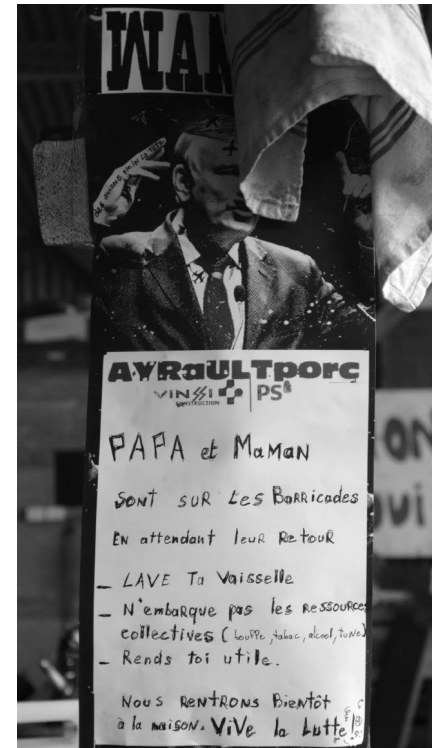 WAN
des avions plein la tête
AYRAULTporc
VINSSI PS
CONSTRUCTION
PAPA et MaMaN
SONT SUR LES BaRRicades
EN attendant leuR RetouR
_ LAVE Ta Vaisselle
_ N'embaRque pas les Ressources
collectives (bouffe, tabac, alcool, tune)
_ Rends toi utile.
Nous RENTRONS Bientôt
à la maison. ViVe la Lutte!
ON
OUI